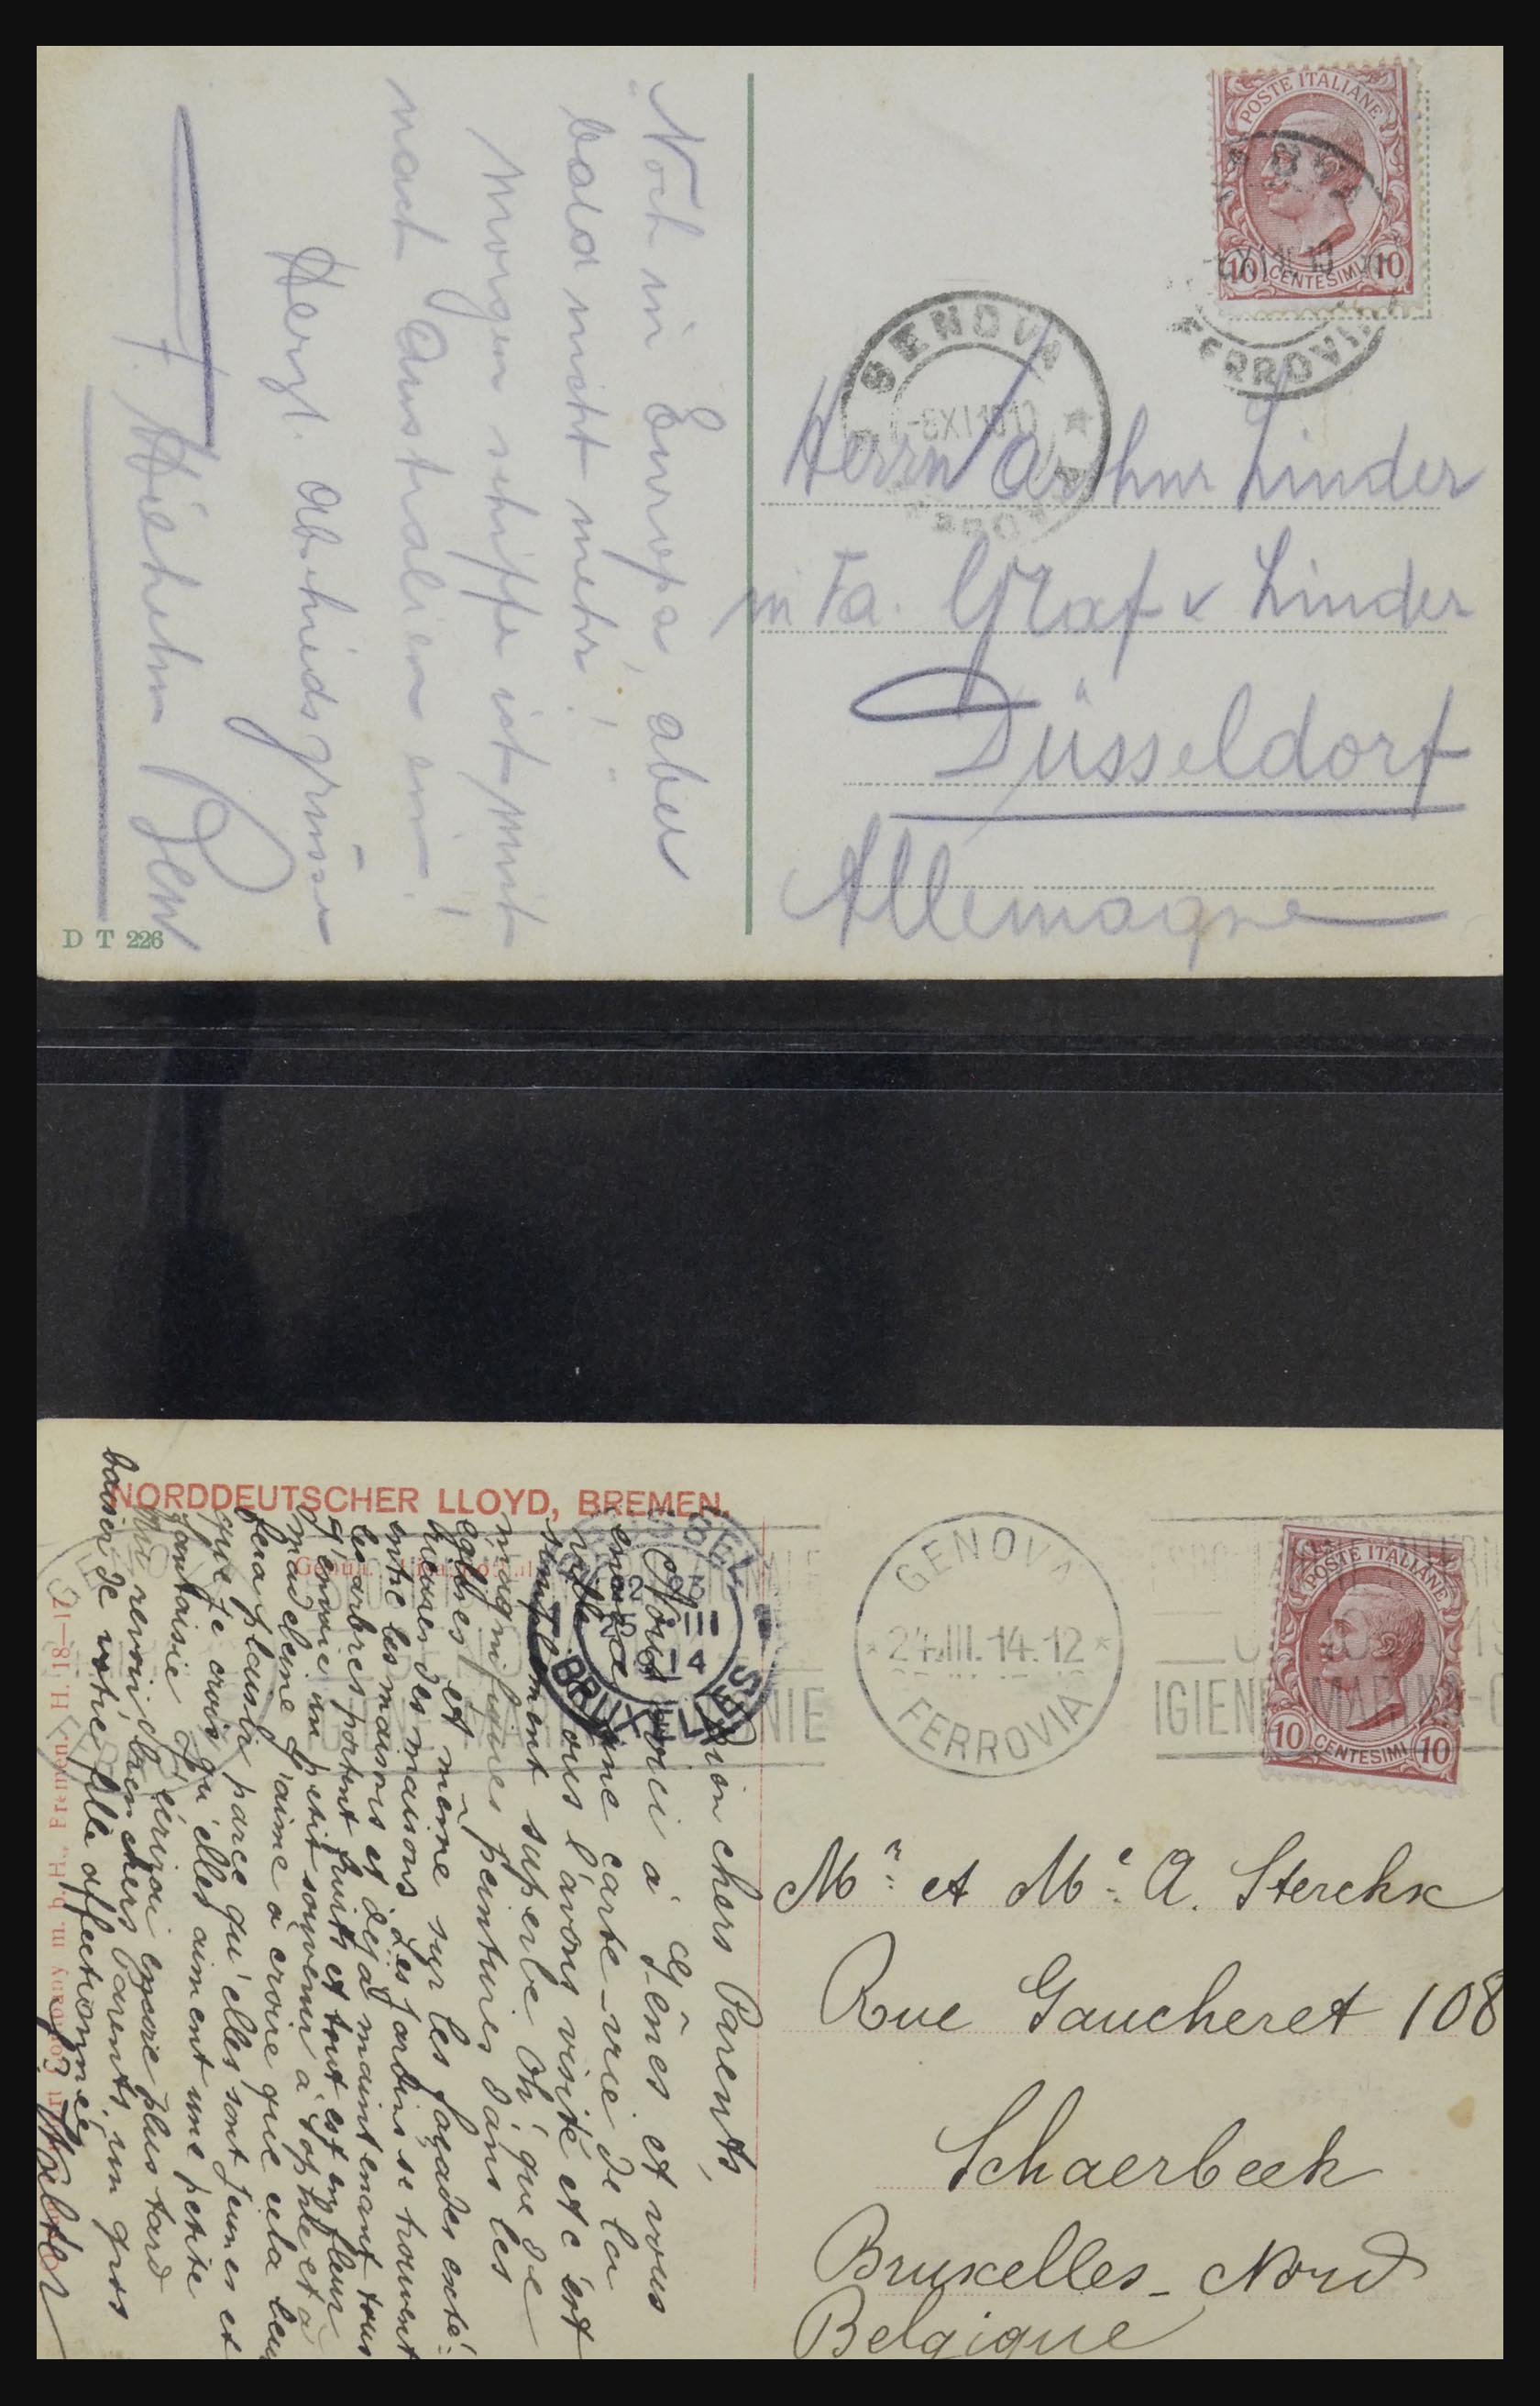 POSTE ITALIANE
10 CENTESIMI 10
FERROVIA
GENOVA
Herrn Arthur Linder
in Fa. Graf & Linder
Düsseldorf
Allemagne
Noch in Europa, aber
bald nicht mehr!
Morgen schiffe ich mich
nach Australien ein!
Herzl. Abschiedsgrüsse
D T 226
NORDDEUTSCHER LLOYD, BREMEN.
GENOVA
24.III.14.12
FERROVIA
POSTE ITALIANE
10 CENTESIMI 10
BRUXELLES
III
14
Mr. et Me. A. Sterckx
Rue Gaucheret 108
Schaerbeek
Bruxelles - Nord
Belgique
Mon chers Parents,
Nous voici à Gênes et vous
une carte-vue de la
nous l'avons visité et c'est
simplement superbe Oh! que de
magnifiques peintures dans les
églises et même sur les façades exté:
rieures des maisons. Les jardins se trouvent
entre les maisons et déjà maintenant tous
les arbres portent fruits et tout est en fleur
J'envoie un petit souvenir à Sophie et à
Madeleine J'aime à croire que cela leur
fera plaisir parce qu'elles sont jeunes et
que je crois qu'elles aiment une petite
fantaisie J'écrirai encore plus tard
Au revoir bien chers Parents, un gros
baiser de votre fille affectionnée